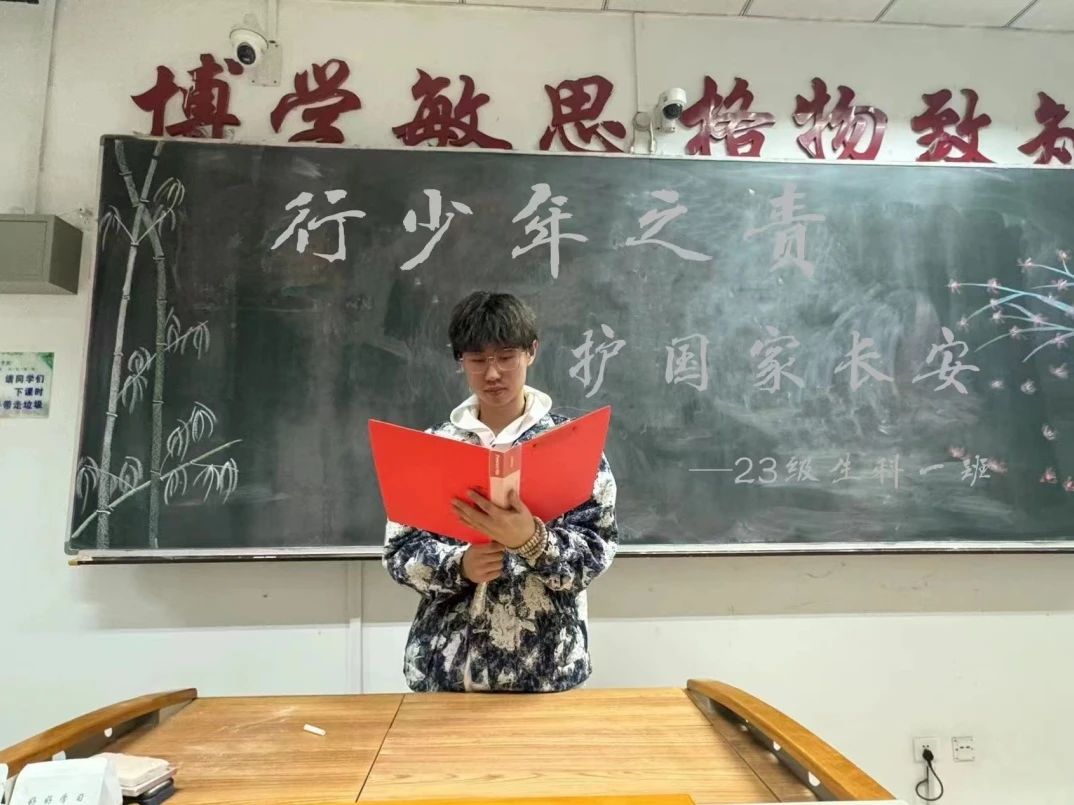 博学敏思格物致知
行少年之责
护国家长安
—23级生科一班
请同学们
下课时
带走垃圾
好好学习